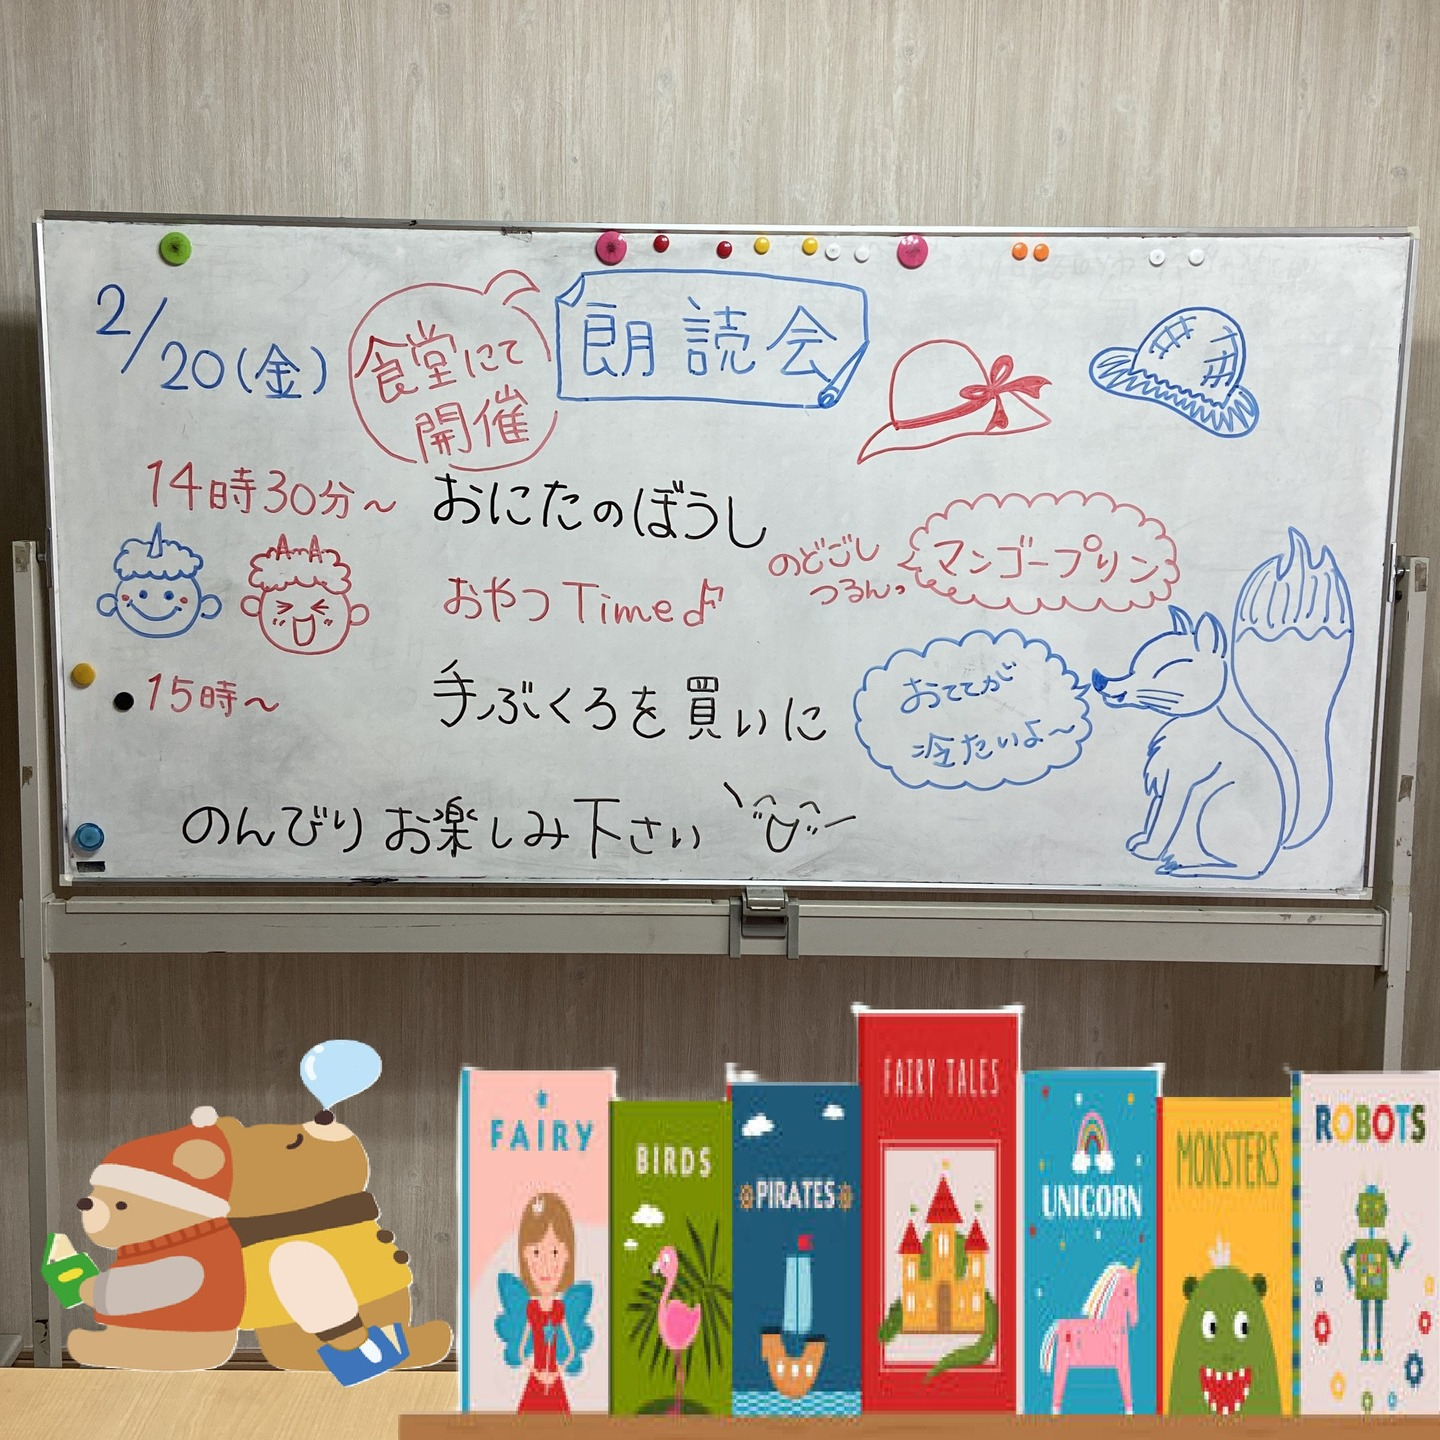 2/20(金)
食堂にて
開催
朗読会
14時30分~
おにたのぼうし
おやつTime♪
のどごし
つるんっ
マンゴープリン
15時~
手ぶくろを買いに
おててが
冷たいよ~
のんびりお楽しみ下さい
FAIRY
BIRDS
PIRATES
FAIRY TALES
UNICORN
MONSTERS
ROBOTS